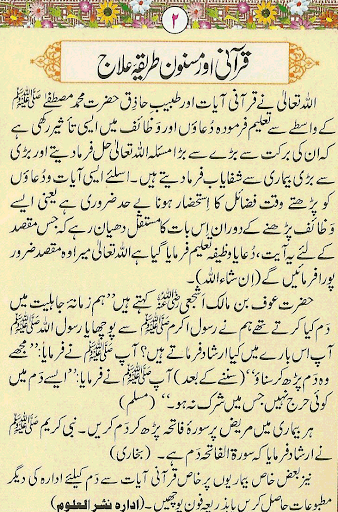 ۲
قرآنی اور مسنون طریقۂ علاج
اللہ تعالیٰ نے قرآنی آیات اور طبیب حاذِق حضرت محمد مصطفےٰ ﷺ
کے واسطے سے تعلیم فرمودہ دُعاؤں اور وَظائف میں ایسی تأثیر رکھی ہے
کہ ان کی برکت سے بڑے سے بڑا مسئلہ اللہ تعالیٰ حل فرما دیتے اور بڑی
سے بڑی بیماری سے شفایاب فرما دیتے ہیں۔ اسلئے ایسی آیات و دُعاؤں
کو پڑھتے وقت فضائل کا اِستحضار ہونا بے حد ضروری ہے یعنی ایسے
وَظائف پڑھنے کے دوران اِس بات کا مستقل دھیان رہے کہ جس مقصد
کے لئے یہ آیت، دُعا یا وظیفہ تعلیم فرمایا گیا ہے اللہ تعالیٰ میرا وہ مقصد ضرور
پورا فرمائیں گے (ان شاء اللہ)۔
حضرت عوف بن مالک اشجعی ؓ کہتے ہیں ”ہم زمانۂ جاہلیت میں
دَم کیا کرتے تھے ہم نے رسول اکرم ﷺ سے پوچھا یا رسول اللہ ﷺ
آپ اس بارے میں کیا ارشاد فرماتے ہیں؟ آپ ﷺ نے فرمایا: ”مجھے
وہ دَم پڑھ کر سناؤ“ (سننے کے بعد) آپ ﷺ نے فرمایا: ”ایسے دَم میں
کوئی حرج نہیں جس میں شرک نہ ہو۔“ (مسلم)
ہر بیماری میں مریض پر سورۂ فاتحہ پڑھ کر دَم کریں۔ نبی کریم ﷺ
نے ارشاد فرمایا کہ سورۃ الفاتحہ دَم ہے۔ (بخاری)
نیز بعض خاص بیماریوں پر خاص قرآنی آیات سے دَم کیلئے ادارہ کی دیگر
مطبوعات حاصل کریں یا بذریعہ فون پوچھیں۔ (ادارہ نشر العلوم)